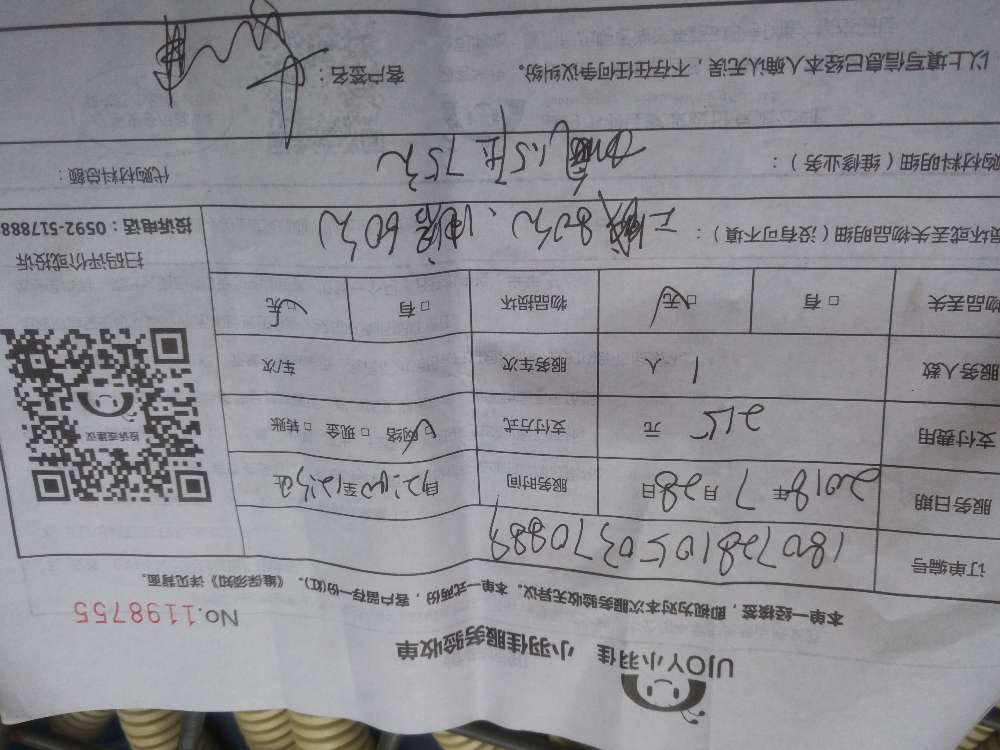 UJOY小羽佳 小羽佳服务验收单
No.1198755
本单一经核签，即视为对本次服务验收无异议。本单一式两份，客户留存一份(红)。《维保须知》详见背面。
订单编号 180728105037088
服务日期 2018年7月28日 服务时间 自12:00至12:
支付费用 215 元 支付方式 □网络 □现金 □转账
服务人数 1 人 服务车次 车/次
物品丢失 □有 □无 物品损坏 □有 □无
损坏或丢失物品明细（没有可不填）： 80元、 60元
扫码评价或投诉
投诉电话：0592-517888
投诉或建议
购材料明细（维修业务）： 1.5 75元
代购材料总额：
以上填写信息已经本人确认无误，不存在任何争议纠纷。 客户签名：